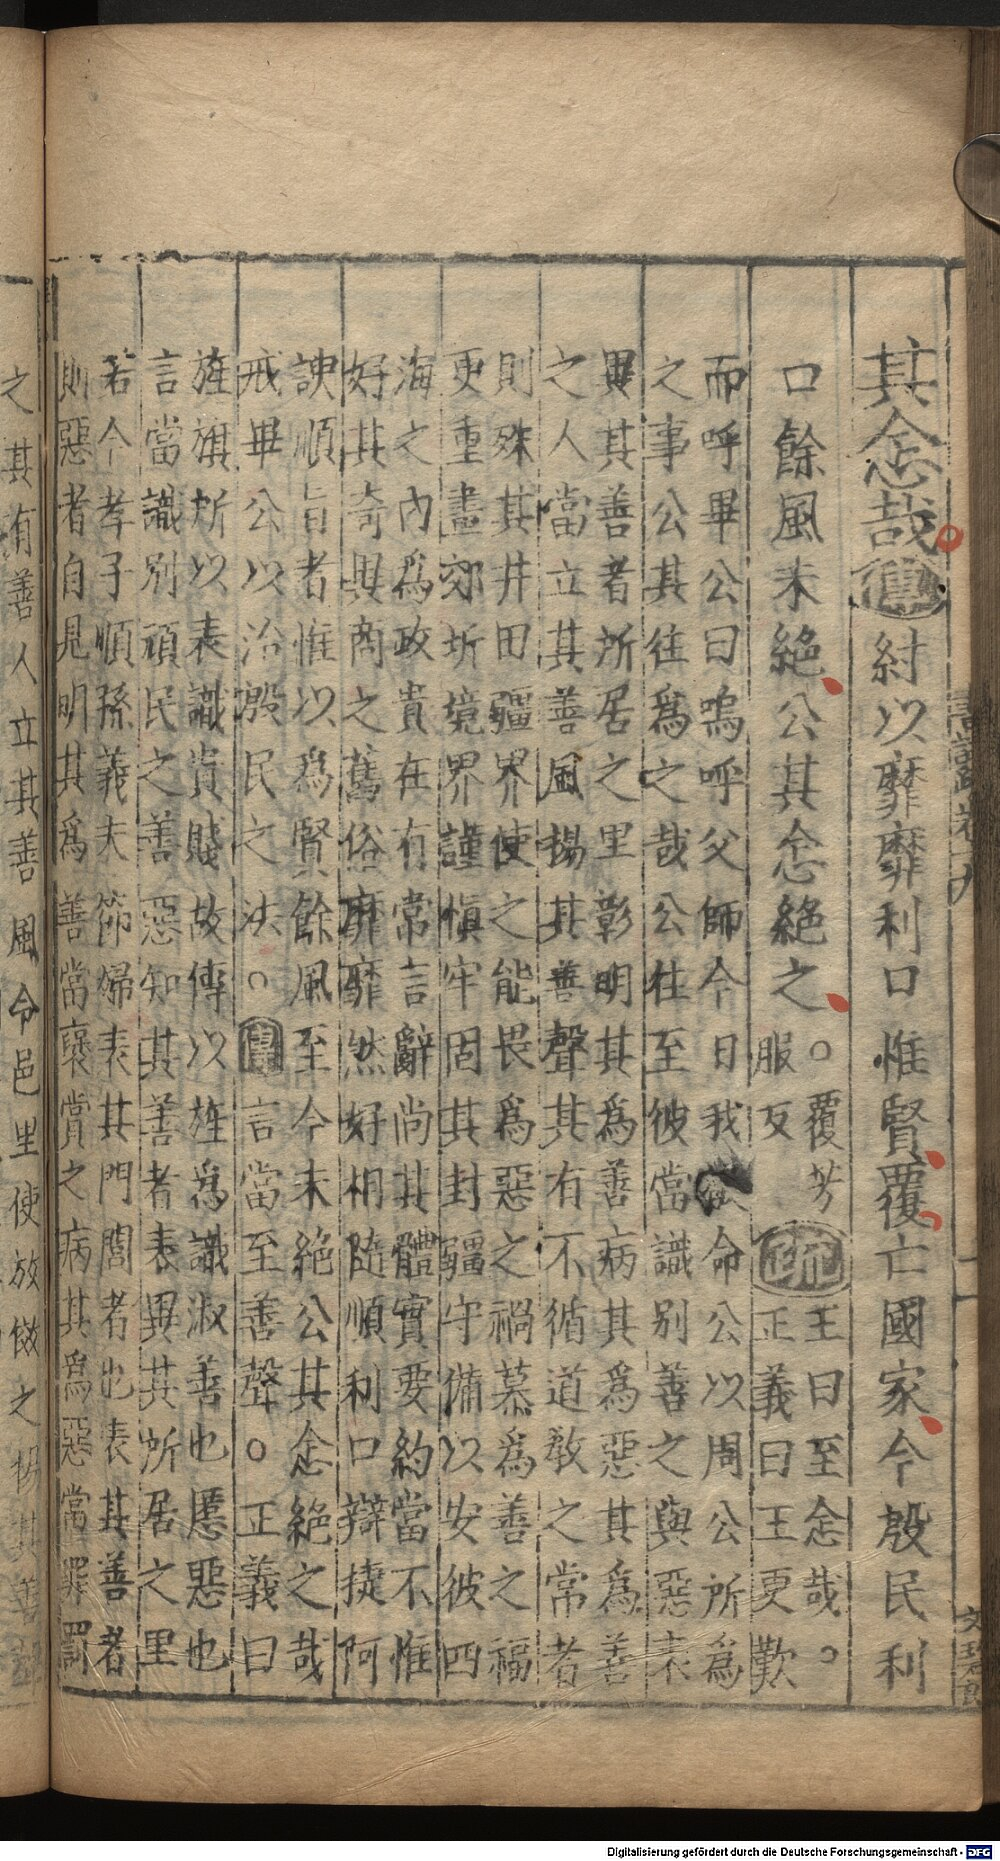 尚書疏卷十九
其念哉傳紂以靡靡利口惟賢覆亡國家今殷民利
口餘風未絕公其念絕之○覆芳
服反疏王曰至念哉○
正義曰王更歎
而呼畢公曰嗚呼父師今日我命公以周公所為
之事公其往為之哉公往至彼當識別善之與惡表
異其善者所居之里彰明其為善病其為惡其為善
之人當立其善風揚其善聲其有不循道教之常者
則殊其井田疆界使之能畏為惡之禍慕為善之福
更重畫郊圻境界謹慎牢固其封疆守備以安彼四
海之內為政貴在有常言辭尚其體實要約當不惟
好其奇異商之舊俗靡靡然好相隨順利口辯捷阿
諛順旨者惟以為賢餘風至今未絕公其念絕之哉
戒畢公以治殷民之法○傳言當至善聲○正義曰
旌旗所以表識貴賤故傳以旌為識淑善也慝惡也
言當識別頑民之善惡知其善者表異其所居之里
若今孝子順孫義夫節婦表其門閭者也表其善者
則惡者自見明其為善當褒賞之病其為惡當罪罰
之其有善人立其善風令邑里使放傚之揚其善聲
Digitalisierung gefördert durch die Deutsche Forschungsgemeinschaft - DFG